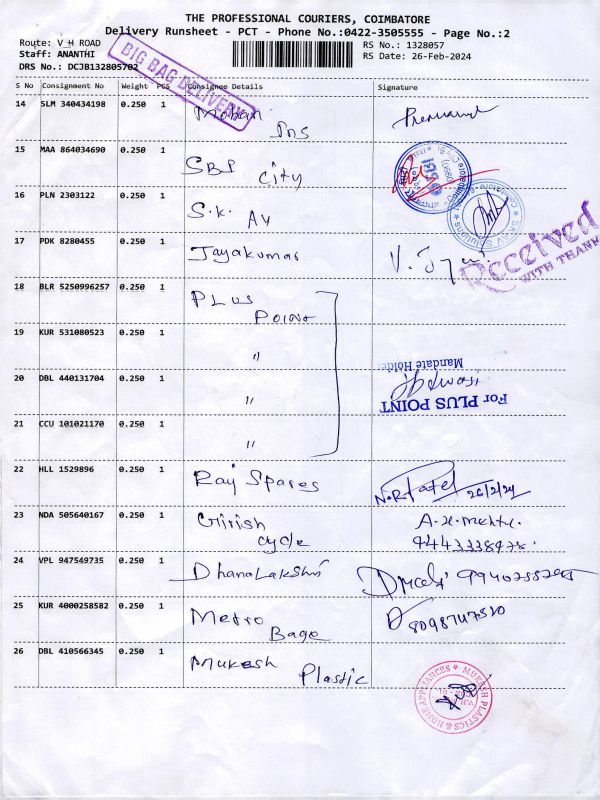 THE PROFESSIONAL COURIERS, COIMBATORE
Delivery Runsheet - PCT - Phone No.:0422-3505555 - Page No.:2
Route: V H ROAD
RS No.: 1328057
Staff: ANANTHI
RS Date: 26-Feb-2024
DRS No.: DCJB132805702
BIG BAG DELIVERY
S No Consignment No Weight PCS Consignee Details Signature
14 SLM 340434198 0.250 1 Mohan
Ins
15 MAA 864034690 0.250 1 SBI
City
16 PLN 2303122 0.250 1 S.K. AV
SKAV Solutions
17 PDK 8280455 0.250 1 Jayakumar
Received
WITH THANK
18 BLR 5250996257 0.250 1 PLUS
Point
19 KUR 531080523 0.250 1 "
20 DBL 440131704 0.250 1 "
Mandate Holder
For PLUS POINT
21 CCU 101021170 0.250 1 "
22 HLL 1529896 0.250 1 Raj Spares N.R.Patel 26/2/24
23 NDA 505640167 0.250 1 Girish
cycle
24 VPL 947549735 0.250 1 DhanaLakshmi
25 KUR 4000258582 0.250 1 Metro
Bage
8098747510
26 DBL 410566345 0.250 1 Mukesh
Plastic
MUKESH PLASTICS
& HOME APPLIANCES